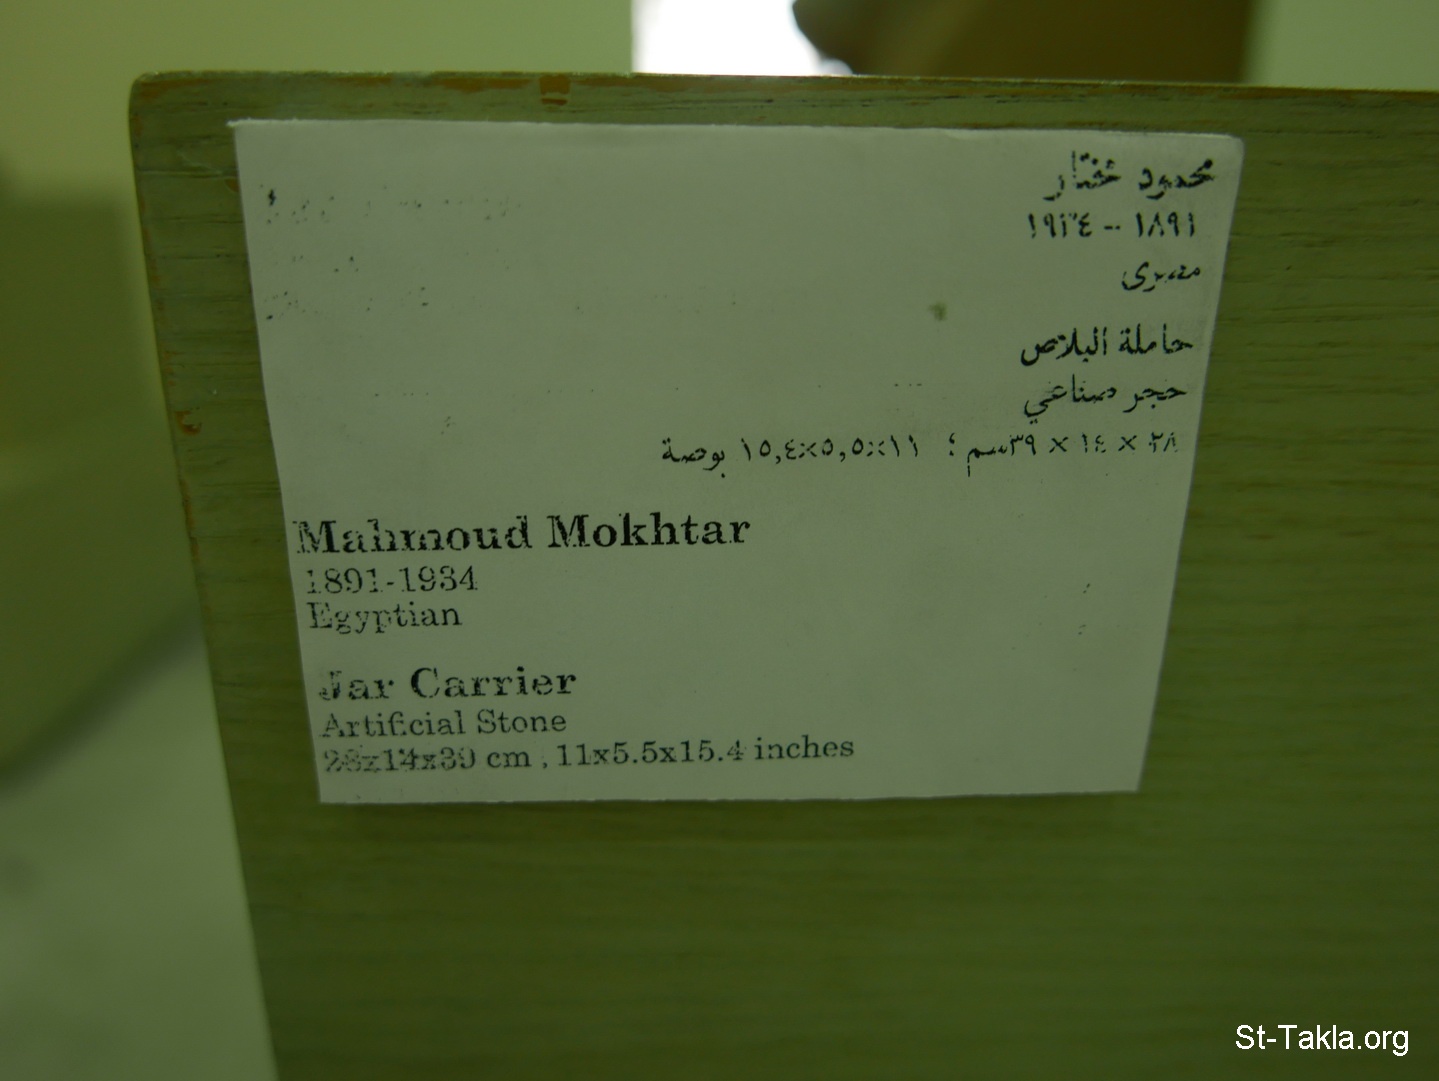 محمود مختار
١٨٩١ -- ١٩٣٤
مصرى
حاملة البلاص
حجر صناعي
٢٨ × ١٤ × ٣٩سم ؛ ١١×٥,٥×١٥,٤ بوصة
Mahmoud Mokhtar
1891-1934
Egyptian
Jar Carrier
Artificial Stone
28x14x39 cm , 11x5.5x15.4 inches
St-Takla.org